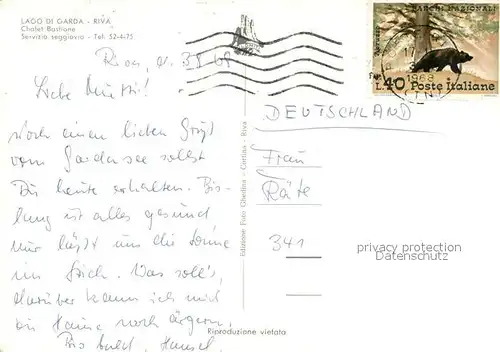 LAGO DI GARDA - RIVA
Chalet Bastione
Servizio seggiovia - Tel. 52-4-75
PARCHI NAZIONALI
L.40 Poste Italiane
1968
Riva, d. 3.8.68
Liebe Mutti!
DEUTSCHLAND
Noch einen lieben Gruß
vom Gardasee sollst
Du heute erhalten. Bis-
lang ist alles gesund,
nur läßt uns die Sonne
im Stich. Was soll's,
darüber kann ich mich
zu Hause noch ärgern.
Bis bald,
Frau
Käte
341
privacy protection
Datenschutz
Edizione Foto Ghedina - Cortina - Riva
Riproduzione vietata